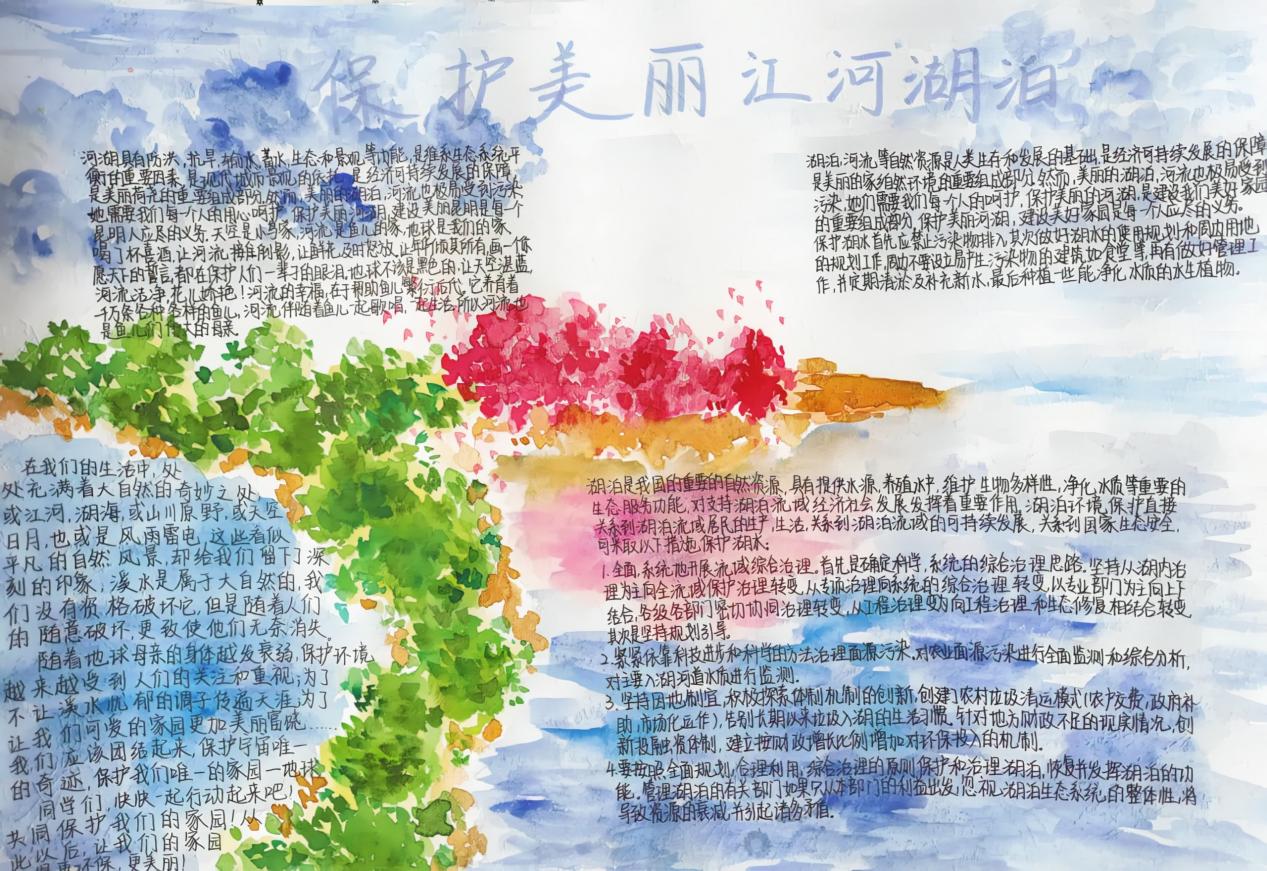 保护美丽江河湖泊
河湖具有防洪,抗旱,输水,蓄水,生态和景观等功能,是维系生态系统平
衡的重要因素,是现代城市景观的依托,是经济可持续发展的保障,
是美丽的重要组成部分。然而,美丽的湖泊,河流也极易受到污染
她需要我们每个人的用心呵护,保护美丽河湖,建设美丽昆明是每个
昆明人应尽的义务。天空是小鸟的家,河流是鱼儿的家,地球是我们的家,
喝了杯喜酒,让河流,让鲜花及时怒放,让知了倾其所有,画一條
愿天下的誓言,都在保护人们一辈子的眼泪,地球不该是黑色的,让天空湛蓝,
河流洁净,花儿娇艳!河流的幸福,在于帮助鱼儿繁衍后代,它养育着
千万条各种各样的鱼儿,河流伴随着鱼儿一起歌唱,一起生活,所以河流也
是鱼儿们伟大的母亲。
湖泊,河流,等自然资源是人类生存和发展的基础,是经济可持续发展的保障
是美丽的家乡自然环境的重要组成部分。然而,美丽的湖泊,河流也极易受到
污染,她们需要我们每个人的呵护,保护美丽的河湖,是建设我们美好家园
的重要组成部分,保护美丽河湖,建设美好家园是每个人应尽的义务。
保护湖水首先应禁止污染物排入,其次做好湖水的使用规划和周边用地
的规划工作,周边不要设立易产生污染物的建筑如食堂等,再有做好管理工
作,并定期清淤及补充新水,最后种植一些能净化水质的水生植物。
在我们的生活中,处
处充满着大自然的奇妙之处
或江河,湖海,或山川原野,或天空
日月,也或是风雨雷电,这些看似
平凡的自然风景,却给我们留下了深
刻的印象,溪水是属于大自然的,我
们没有资格破坏它,但是随着人们
的随意破坏,更致使他们无奈消失。
随着地球母亲的身体越发衰弱,保护环境
越来越受到人们的关注和重视;为了
不让溪水忧郁的调子传遍天涯,为了
让我们可爱的家园更加美丽富饶……
我们应该团结起来,保护宇宙唯一
的奇迹,保护我们唯一的家园—地球
同学们,快快一起行动起来吧!
共同保护我们的家园!从
此以后,让我们的家园
环保,更美丽!
湖泊是我国的重要的自然资源,具有提供水源,养殖水中,维护生物多样性,净化水质等重要的
生态服务功能,对支持湖泊流域经济社会发展发挥着重要作用,湖泊环境保护直接
关系到湖泊流域居民的生产,生活,关系到湖泊流域的可持续发展,关系到国家生态安全,
可采取以下措施,保护湖水:
1.全面,系统地开展流域综合治理。首先是确定科学,系统的综合治理思路,坚持从湖内治
理为主向全流域保护治理转变,从专项治理向系统的综合治理转变,以专业部门为主向上下
结合,各级各部门密切协同治理转变,从工程治理变为向工程治理和生态修复相结合转变
其次是坚持规划引导。
2.紧紧依靠科技进步和科学的方法治理面源污染,对农业面源污染进行全面监测和综合分析,
对主要入湖河道水质进行监测。
3.坚持因地制宜,积极探索体制机制的创新,创建了农村垃圾清运模式(农户交费,政府补
助,市场化运作),告别长期以来垃圾入湖的生活习惯,针对地方财政不足的现实情况,创
新投融资体制,建立按财政增长比例增加对环保投入的机制。
4.要按照全面规划,合理利用,综合治理的原则保护和治理湖泊,恢复并发挥湖泊的功
能。管理湖泊的有关部门如果只从本部门的利益出发,忽视湖泊生态系统的整体性,将
导致资源的衰减并引起诸多矛盾。